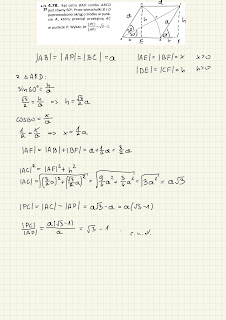 4.78. Kąt ostry rombu ABCD
ma miarę 60°. Przez wierzchołki B i D
poprowadzono okrąg o środku w punk-
cie A, który przeciął przekątną AC
w punkcie P. Wykaż, że |PC|/|AP| = √3 − 1.
|AB| = |AP| = |BC| = a
|AE| = |BF| = x x>0
|DE| = |CF| = h h>0
z △ABD:
sin60° = h/a
√3/2 = h/a ⇒ h = √3/2 a
cos60° = x/a
1/2 = x/a ⇒ x = 1/2 a
|AF| = |AB| + |BF| = a + 1/2 a = 3/2 a
|AC|² = |AF|² + h²
|AC| = √((3/2 a)² + (√3/2 a)²) = √(9/4 a² + 3/4 a²) = √(3a²) = a√3
|PC| = |AC| − |AP| = a√3 − a = a(√3−1)
|PC|/|AP| = a(√3−1)/a = √3 − 1 . c.n.d.